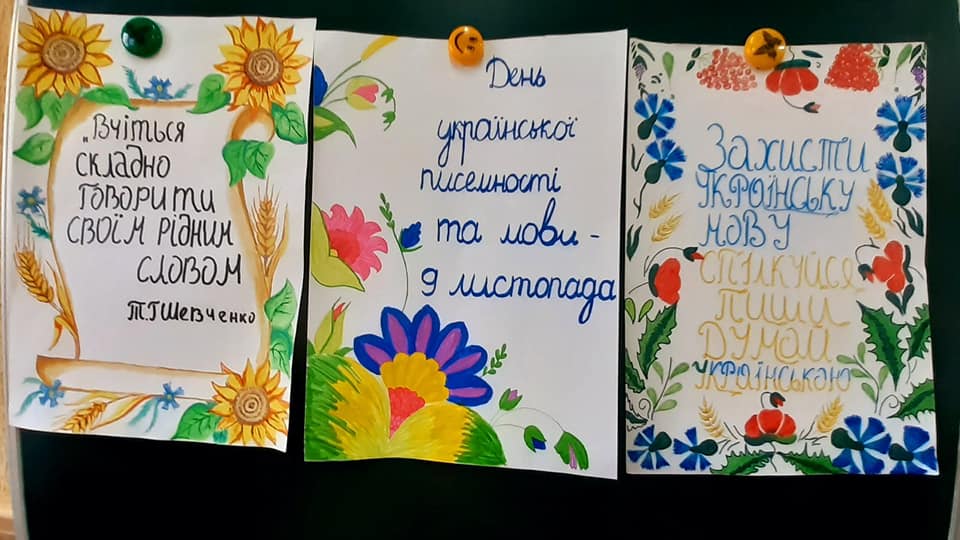 „Вчіться
складно
говорити
своїм рідним
словом
Т.Г Шевченко
День
української
писемності
та мови -
9 листопада
Захисти
українську
мову
спілкуйся
пиши
думай
українською